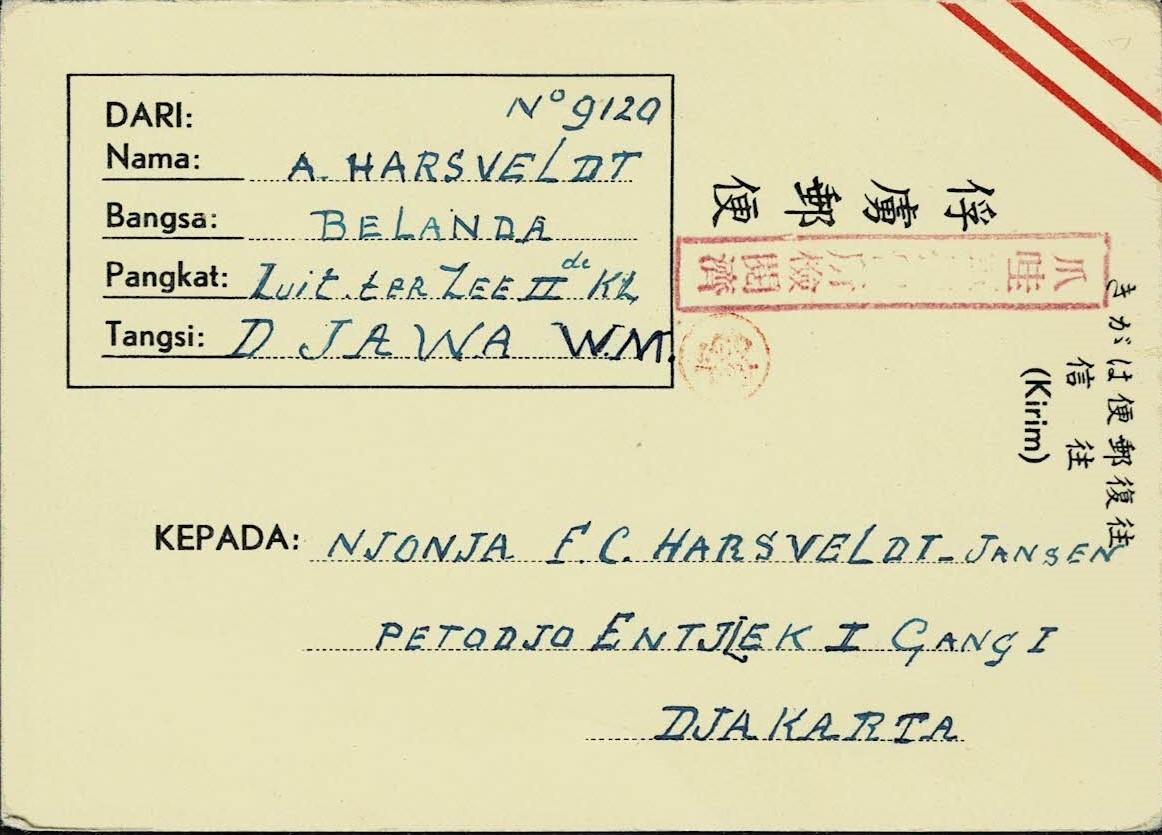 DARI: Nº 9120
Nama: A. HARSVELDT
Bangsa: BELANDA
Pangkat: Luit. ter ZEE II de KL
Tangsi: DJAWA W.M.
俘虜郵便
爪哇 檢閲濟
往復郵便はがき
往信
(Kirim)
KEPADA: NJONJA F.C. HARSVELDT-JANSEN
PETODJO ENTJLEK I GANG I
DJAKARTA